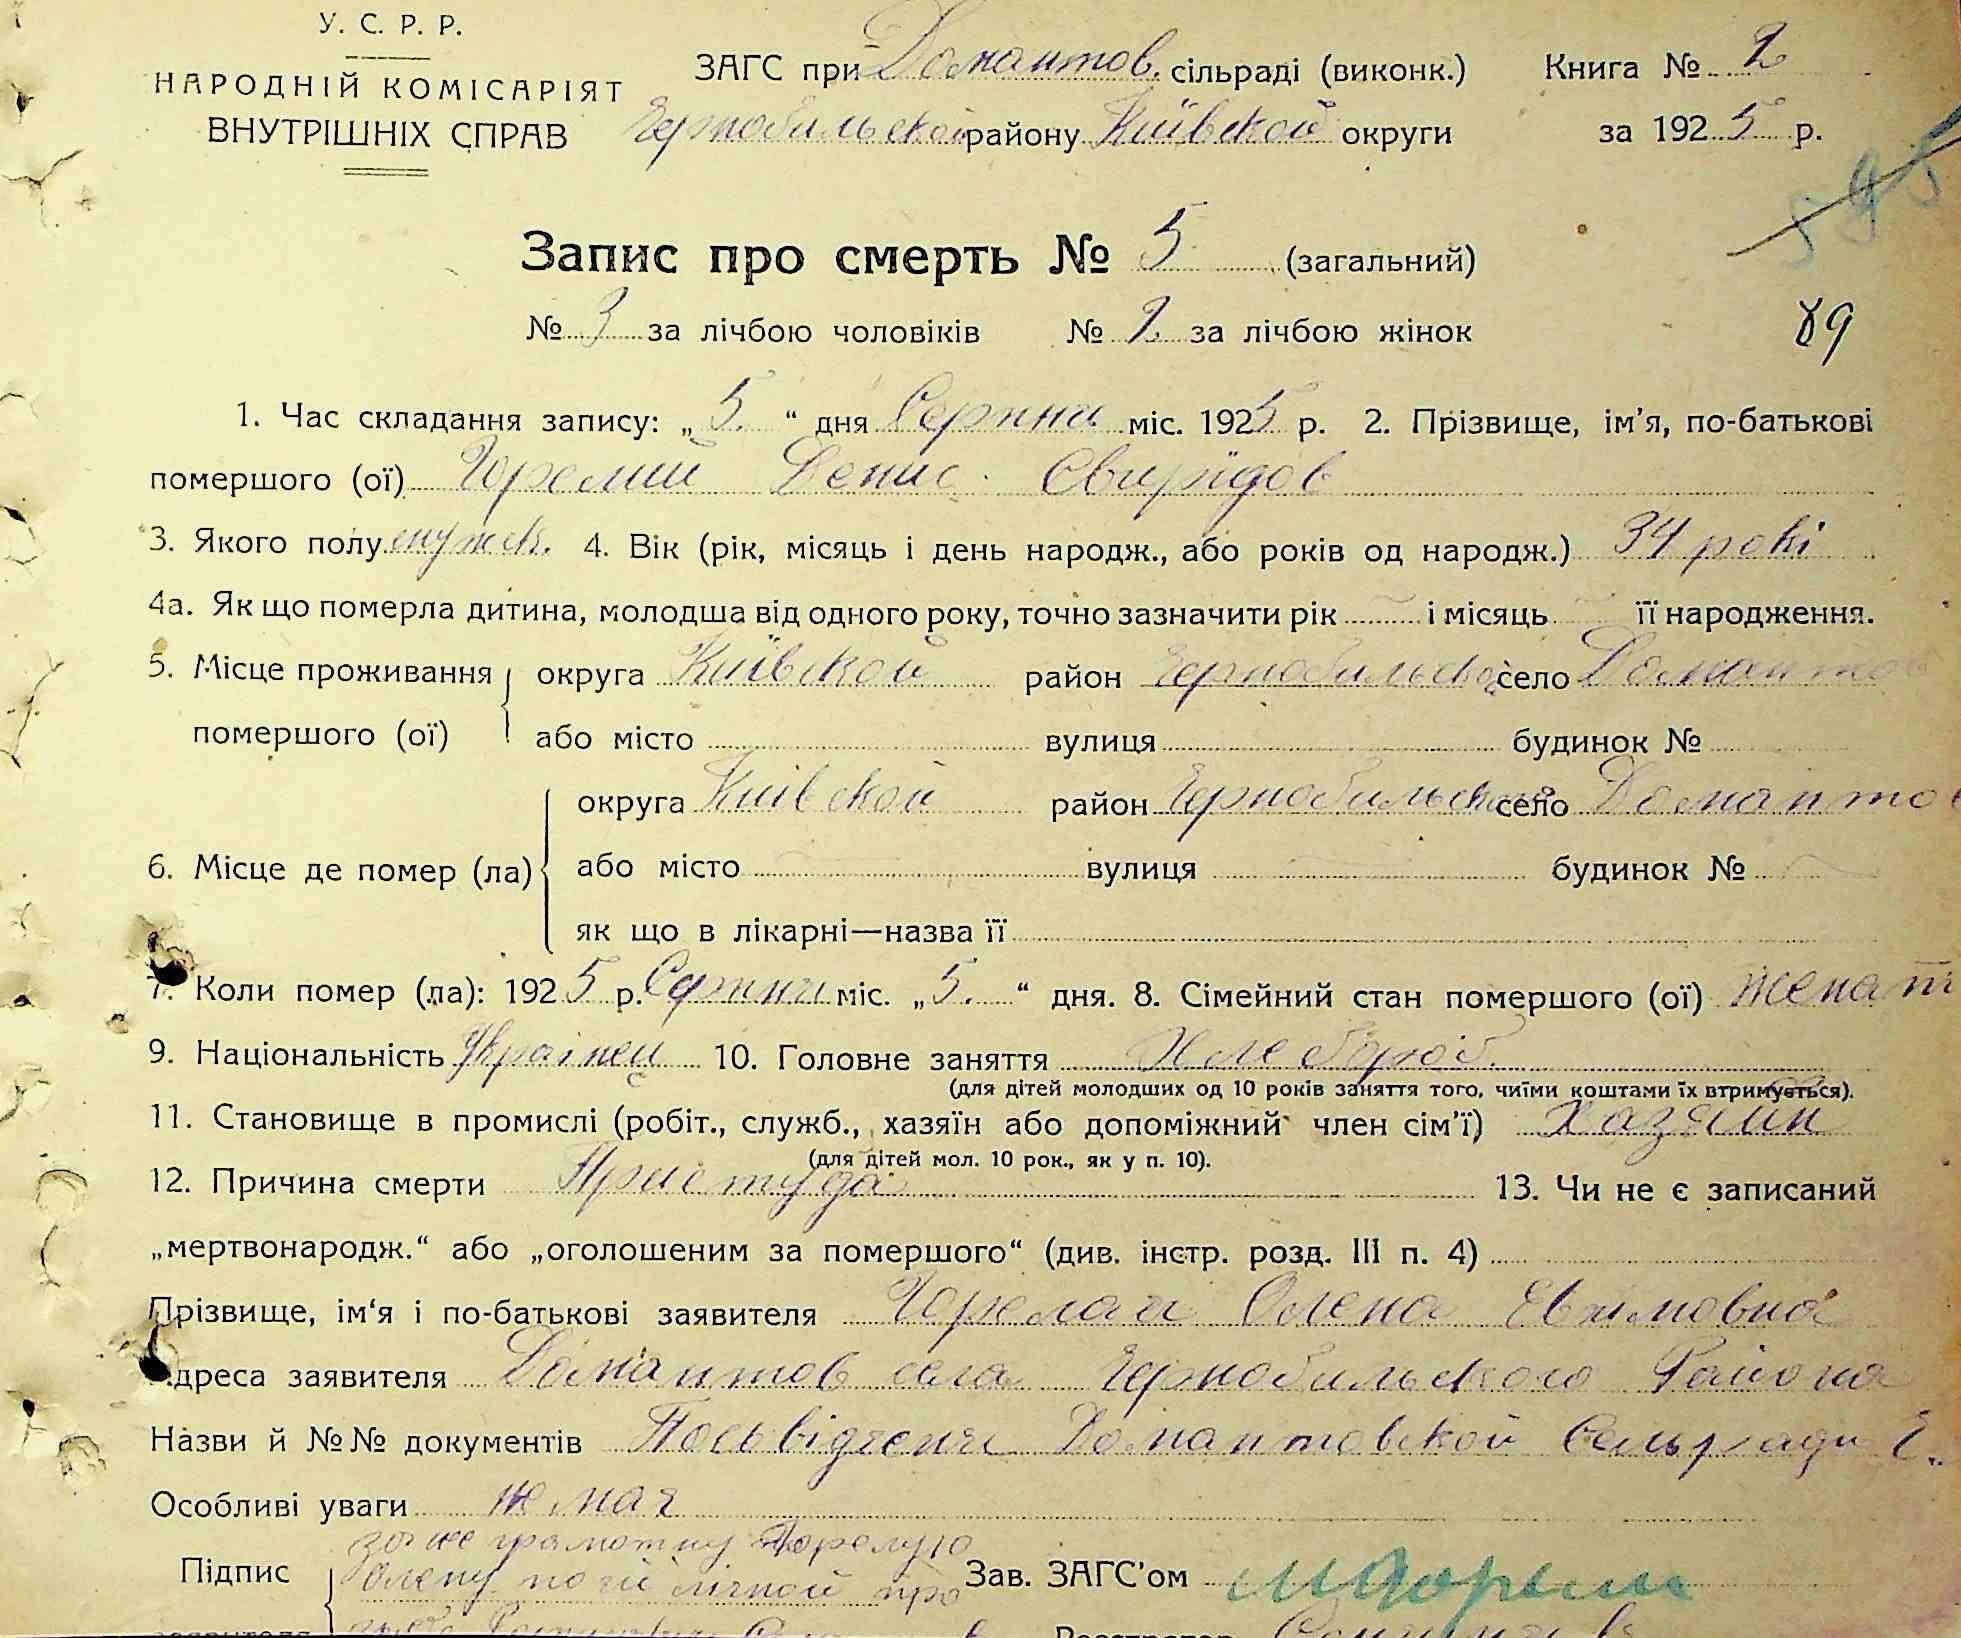 У. С. Р. Р.
НАРОДНІЙ КОМІСАРІЯТ
ВНУТРІШНІХ СПРАВ
ЗАГС при Домантов. сільраді (виконк.)
Чернобильской району Київской округи
Книга № 2
за 1925 р.
89
Запис про смерть № 5 (загальний)
№ 3 за лічбою чоловіків № 2 за лічбою жінок
1. Час складання запису: „ 5. “ дня Серпня міс. 1925 р. 2. Прізвище, ім’я, по-батькові
помершого (ої) Горелий Денис Свирідов
3. Якого полу мужск. 4. Вік (рік, місяць і день народж., або років од народж.) 34 рокі
4а. Як що померла дитина, молодша від одного року, точно зазначити рік і місяць її народження.
5. Місце проживання помершого (ої) округа Київской район Чернобильской село Домантов
або місто вулиця будинок №
6. Місце де помер (ла) округа Київской район Чернобильской село Домантов
або місто вулиця будинок №
як що в лікарні—назва її
7. Коли помер (ла): 1925 р. Серпня міс. „ 5. “ дня. 8. Сімейний стан помершого (ої) женат
9. Національність Українец 10. Головне заняття Хлебороб.
(для дітей молодших од 10 років заняття того, чиїми коштами їх втримується).
11. Становище в промислі (робіт., служб., хазяїн або допоміжний член сім’ї) Хазяин
(для дітей мол. 10 рок., як у п. 10).
12. Причина смерти Приступа 13. Чи не є записаний
„мертвонародж.“ або „оголошеним за помершого“ (див. інстр. розд. III п. 4)
Прізвище, ім‘я і по-батькові заявителя Горелая Олена Евхимовна
Адреса заявителя Домантов села Чернобильского Района
Назви й №№ документів Посьвідченя Домантовской Сельради
Особливі уваги не мая
Підпис заявителя за не грамотну Горелую
Олену по гії лічной про
Зав. ЗАГС’ом
Реєстратор